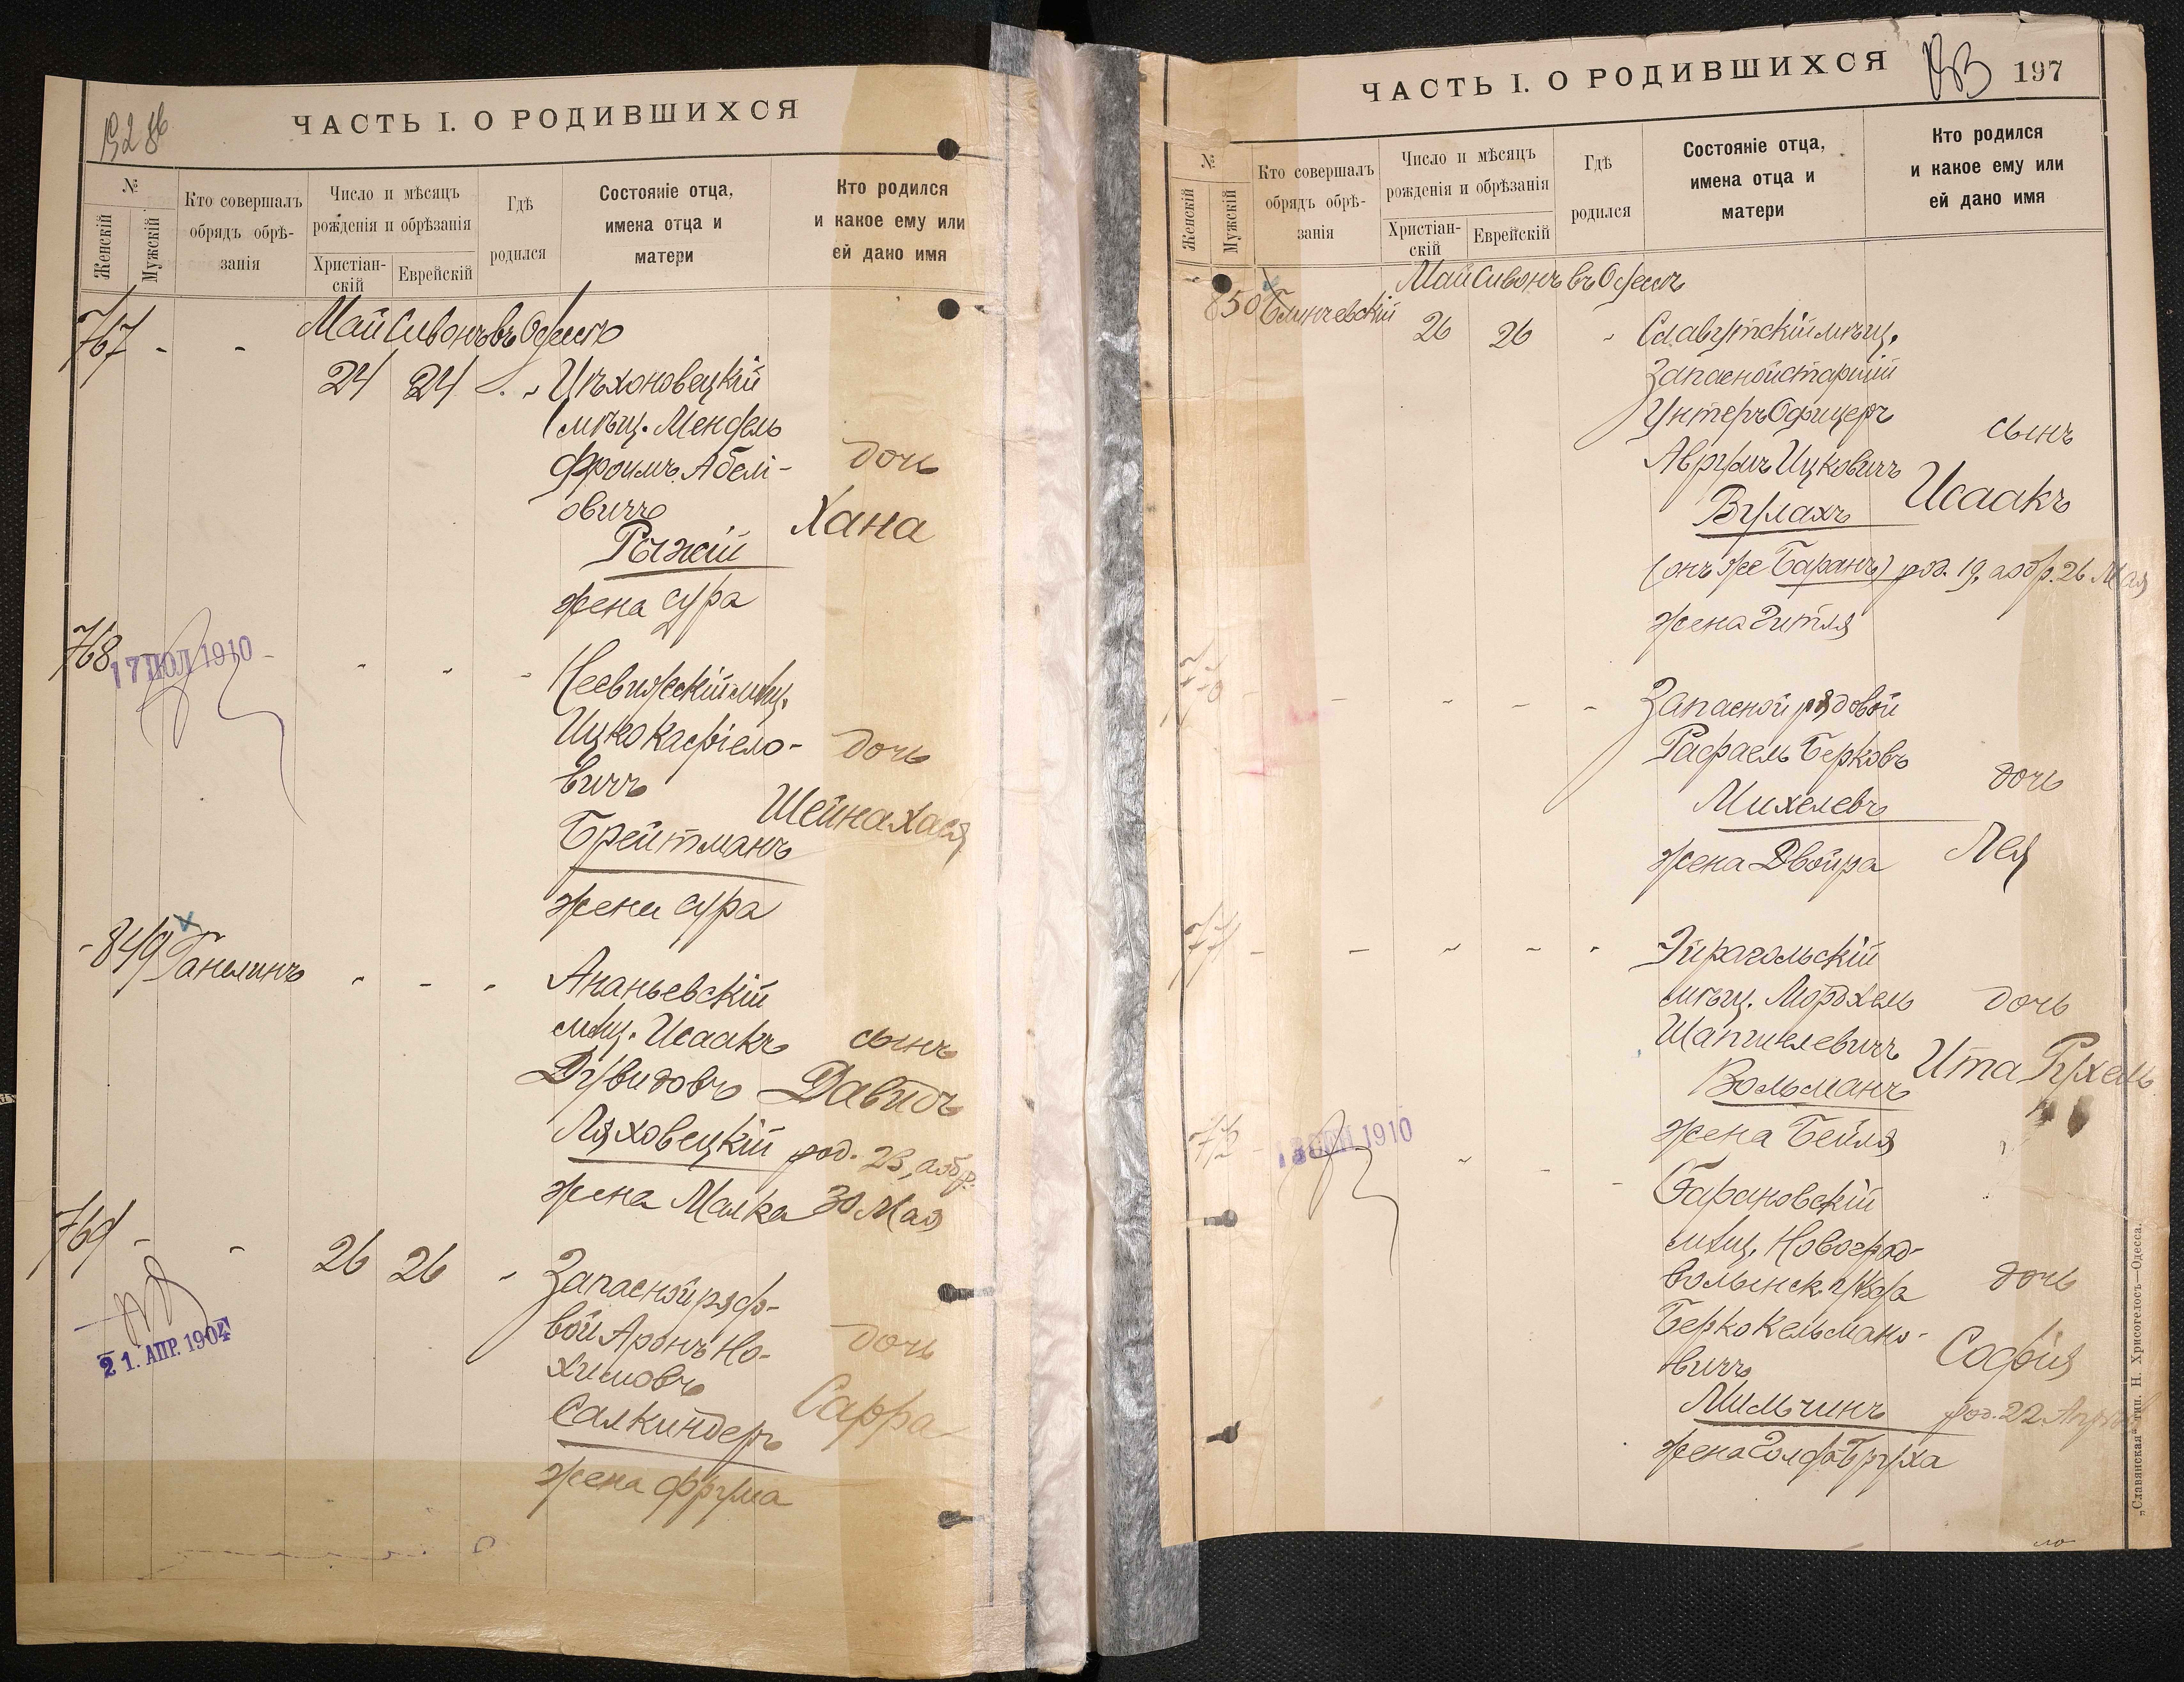 ЧАСТЬ I. О РОДИВШИХСЯ
№
Женскій
Мужскій
Кто совершалъ
обрядъ обрѣ-
занія
Число и мѣсяцъ
рожденія и обрѣзанія
Христіан-
скій
Еврейскій
Гдѣ
родился
Состояніе отца,
имена отца и
матери
Кто родился
и какое ему или
ей дано имя
767 - - Май Сивонъ въ Одессѣ
24 24 Цѣхоновецкій
мѣщ. Мендель
Фроимъ Абелі-
овичъ
дочь
Хана
Рыжій
жена Сура
768
17 1910
Несвижскій мѣщ.
Ицко
вичъ
дочь
Шейна Хася
Брейтманъ
жена Сура
- 849
Ананьевскій
мѣщ. Исаакъ сынъ
Дувидовъ Давидъ
Ляховецкій род. 23, а обр.
жена Малка 30 Мая
769 - - 26 26
21. АПР. 1904
Запасной рядо-
вой Аронъ Но-
химовъ
дочь
Сарра
Салкиндеръ
жена Фрума
ЧАСТЬ I. О РОДИВШИХСЯ 197
№
Женскій
Мужскій
Кто совершалъ
обрядъ обрѣ-
занія
Число и мѣсяцъ
рожденія и обрѣзанія
Христіан-
скій
Еврейскій
Гдѣ
родился
Состояніе отца,
имена отца и
матери
Кто родился
и какое ему или
ей дано имя
Май Сивонъ въ Одессѣ
850 26 26 Славутскій мѣщ.
Запасной старшій
Унтеръ Офицеръ
Аврумъ Ицковичъ
сынъ
Исаакъ
Вулахъ
(онъ же Баранъ) род. 19, а обр. 26 Мая
жена Гитля
770
Запасной рядовой
Рафаель Берковъ
дочь
Михелевъ
жена Двойра Лея
771
Эйрагольскій
мѣщ. Мордхель дочь
Ита Рухель
Вольманъ
жена Бейля
772
1910
Барановскій
мѣщ. Новоград-
волынск. уѣзда дочь
Берко Кельмано-
вичъ
Софія
Мильчинъ род. 22 Апрѣля
жена Голда Бруха
„Славянская“ тип. Н. Хрисогелосъ—Одесса.